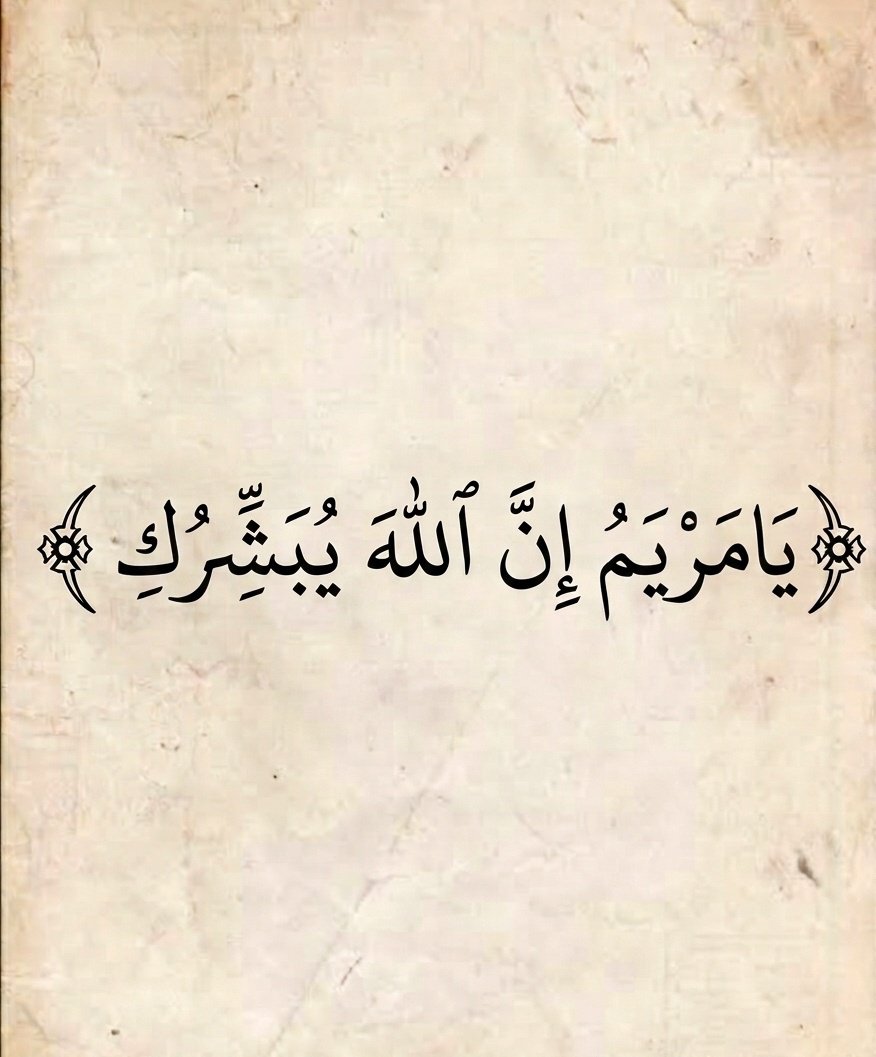 ﴿يَامَرْيَمُ إِنَّ ٱللَّهَ يُبَشِّرُكِ﴾